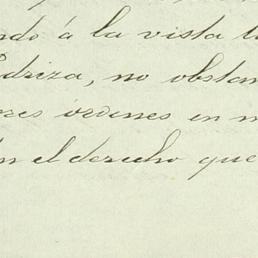 ndo á la vista
driza, no obstan
res ordenes en
n el derecho que